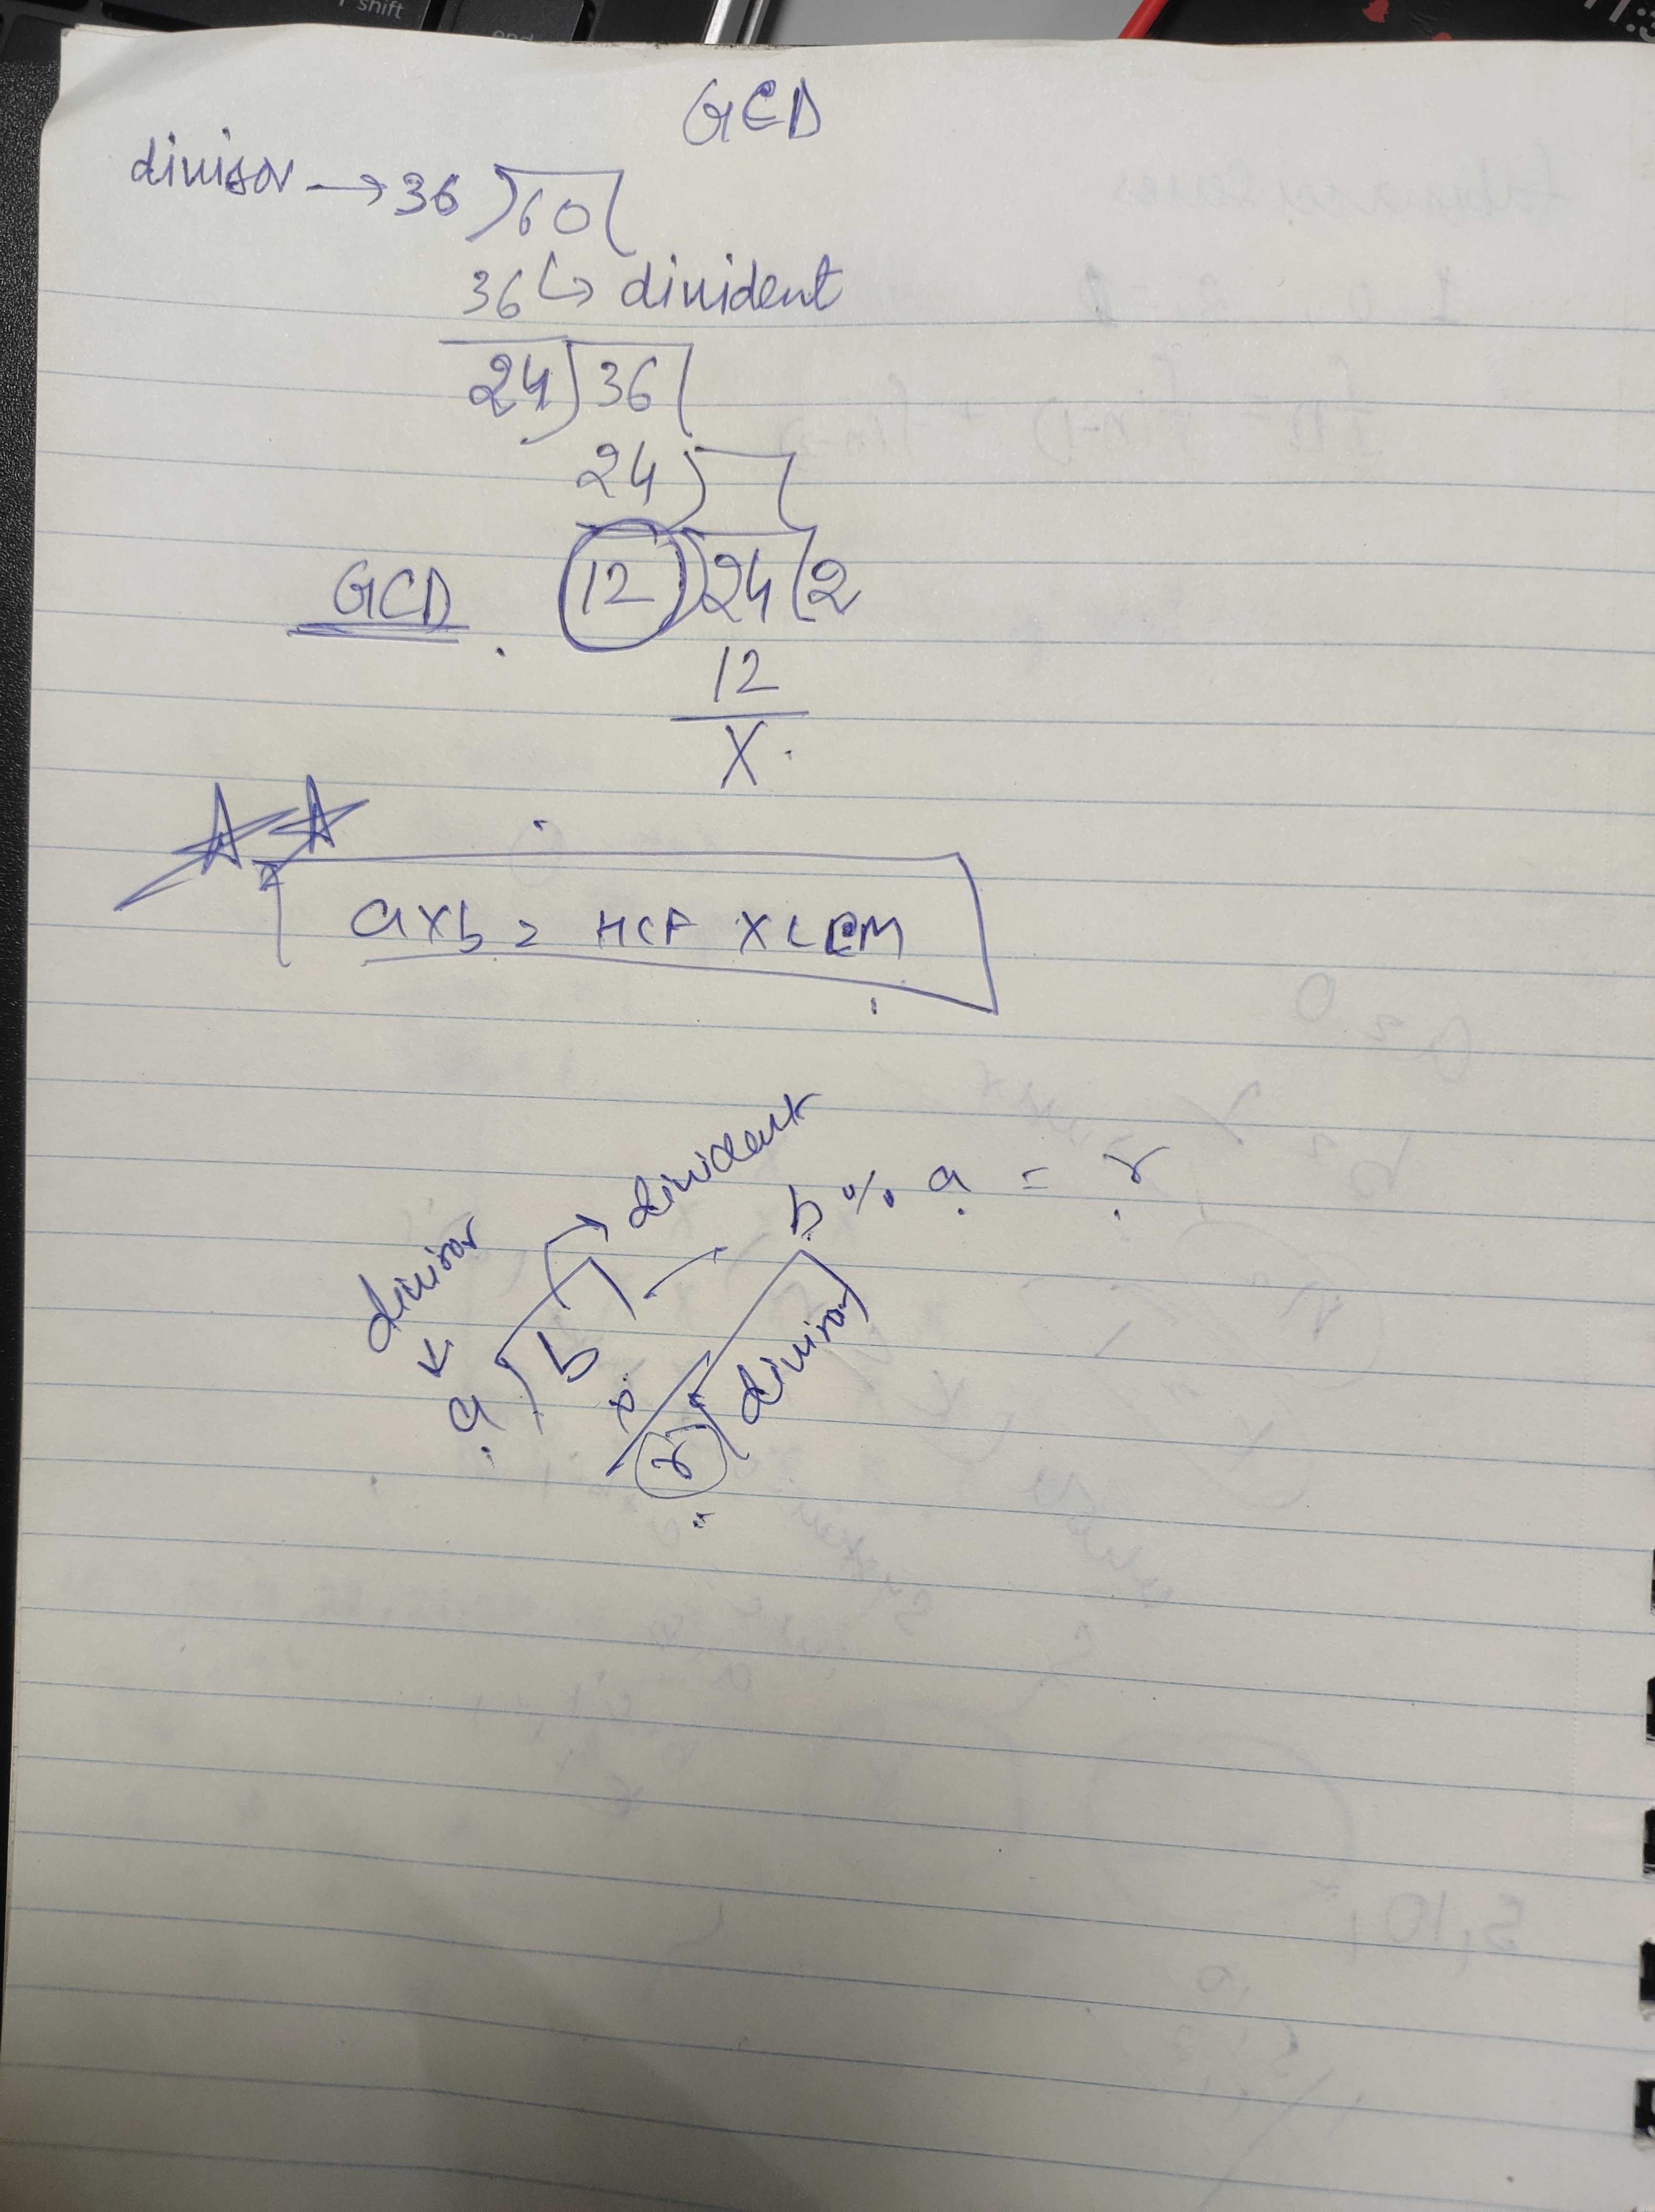 shift
end
GCD
divisor → 36 ) 60 (
36 ↳ divident
24 ) 36 (
24
GCD. 12 ) 24 ( 2
12
X.
a x b = HCF X LCM
divident
b % a = r
divisor
a ) b
r
divisor
5, 10,